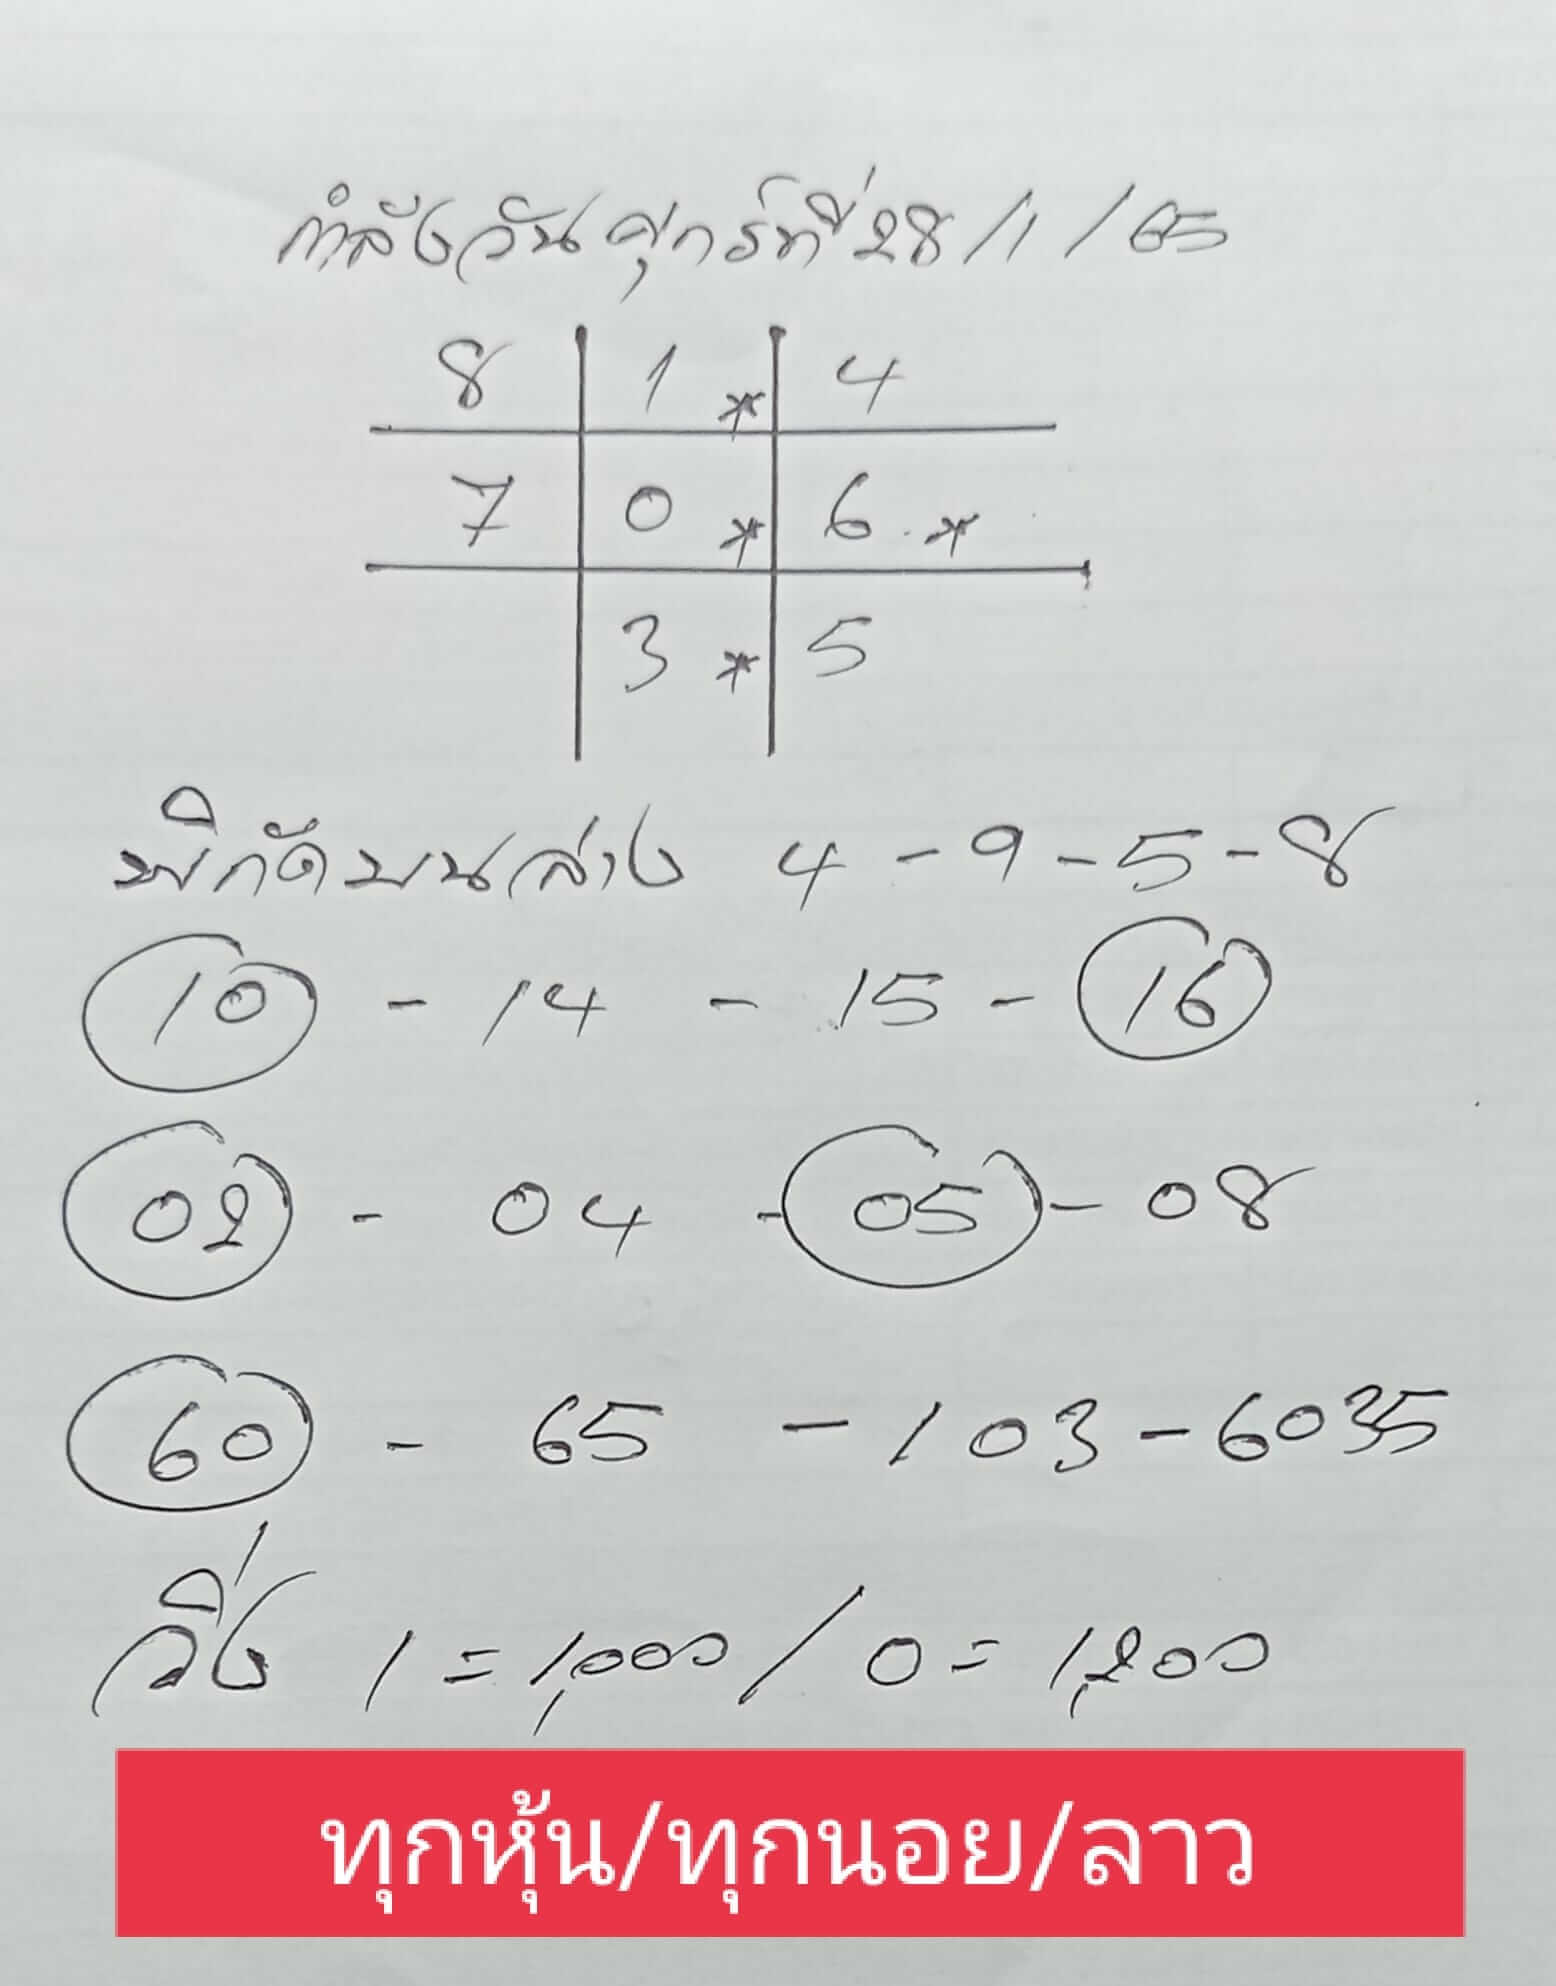 กำลังวันศุกร์ที่ 28/1/65
8 1 * 4
7 0 * 6 *
3 * 5
พิกัดบนล่าง 4 - 9 - 5 - 8
10 - 14 - 15 - 16
02 - 04 - 05 - 08
60 - 65 - 103 - 6035
วิ่ง 1 = 1,000 / 0 = 1,200
ทุกหุ้น/ทุกนอย/ลาว